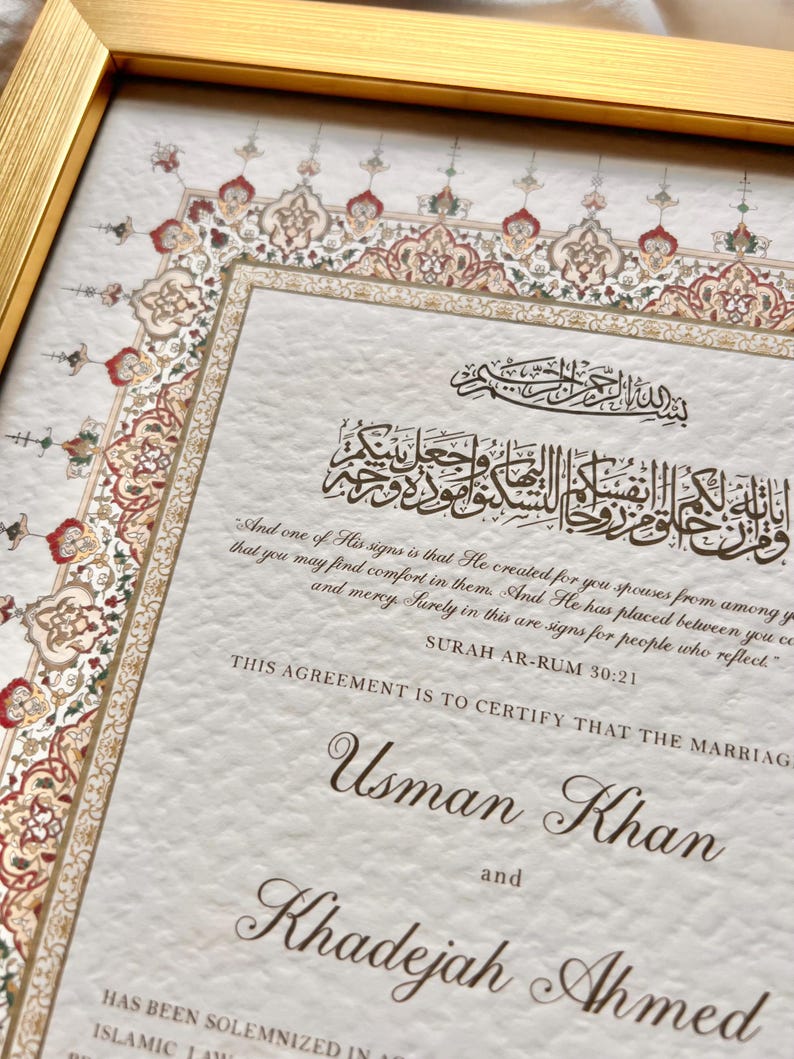 بسم الله الرحمن الرحيم
ومن آياته أن خلق لكم من أنفسكم أزواجا لتسكنوا إليها وجعل بينكم مودة ورحمة
"And one of His signs is that He created for you spouses from among
that you may find comfort in them. And He has placed between you
and mercy. Surely in this are signs for people who reflect."
SURAH AR-RUM 30:21
THIS AGREEMENT IS TO CERTIFY THAT THE MARRIAG
Usman Khan
and
Khadejah Ahmed
HAS BEEN SOLEMNIZED IN
ISLAMIC LAW